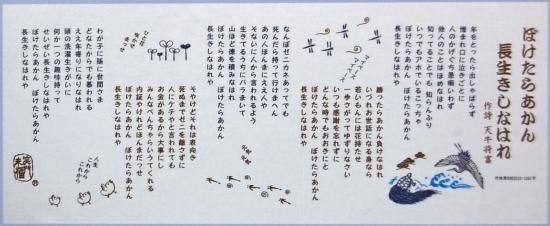 ぼけたらあかん
長生きしなはれ
作詩 天牛将富
年をとったら出しゃばらず
憎まれ口に泣きごとに
人のかげぐち愚痴いわず
他人のことはほめなはれ
知ってることでも 知らんふり
いつでもアホでいるこっちゃ
ぼけたらあかん ぼけたらあかん
長生きしなはれや
勝ったらあかん負けなはれ
いづれお世話になる身なら
若いもんには花持たせ
一歩さがってゆずりなさい
いつも感謝を忘れずに
どんな時でもおおきにと
ぼけたらあかん ぼけたらあかん
長生きしなはれや
なんぼゼニカネあってでも
死んだら持って行けまへん
あの人ほんまにええ人や
そないに人から言われるよう
生きてるうちにバラまいて
山ほど徳を積みなはれ
ぼけたらあかん ぼけたらあかん
長生きしなはれや
そやけどそれは表向き
死ぬまでゼニを離さずに
人にケチやと言われても
お金があるから大事にし
みんなべんちゃらいうてくれる
内証やけれどほんまだっせ
ぼけたらあかん ぼけたらあかん
長生きしなはれや
わが子に孫に世間さま
どなたからでも慕われる
ええ年寄りになりなはれ
頭の洗濯生きがいに
何か一つの趣味持って
せいぜい長生きしなはれや
ぼけたらあかん ぼけたらあかん
長生きしなはれや
人生
これから
これから